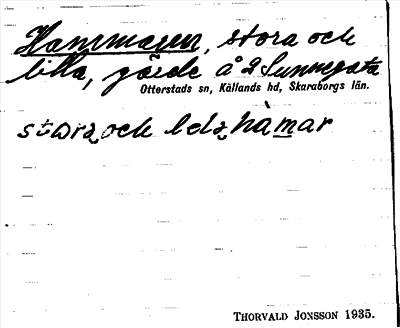 Hammaren, stora och
lilla, gärde å 2 Sunnegata
Otterstads sn, Kållands hd, Skaraborgs län.
stora och lela hàmar
THORVALD JONSSON 1935.